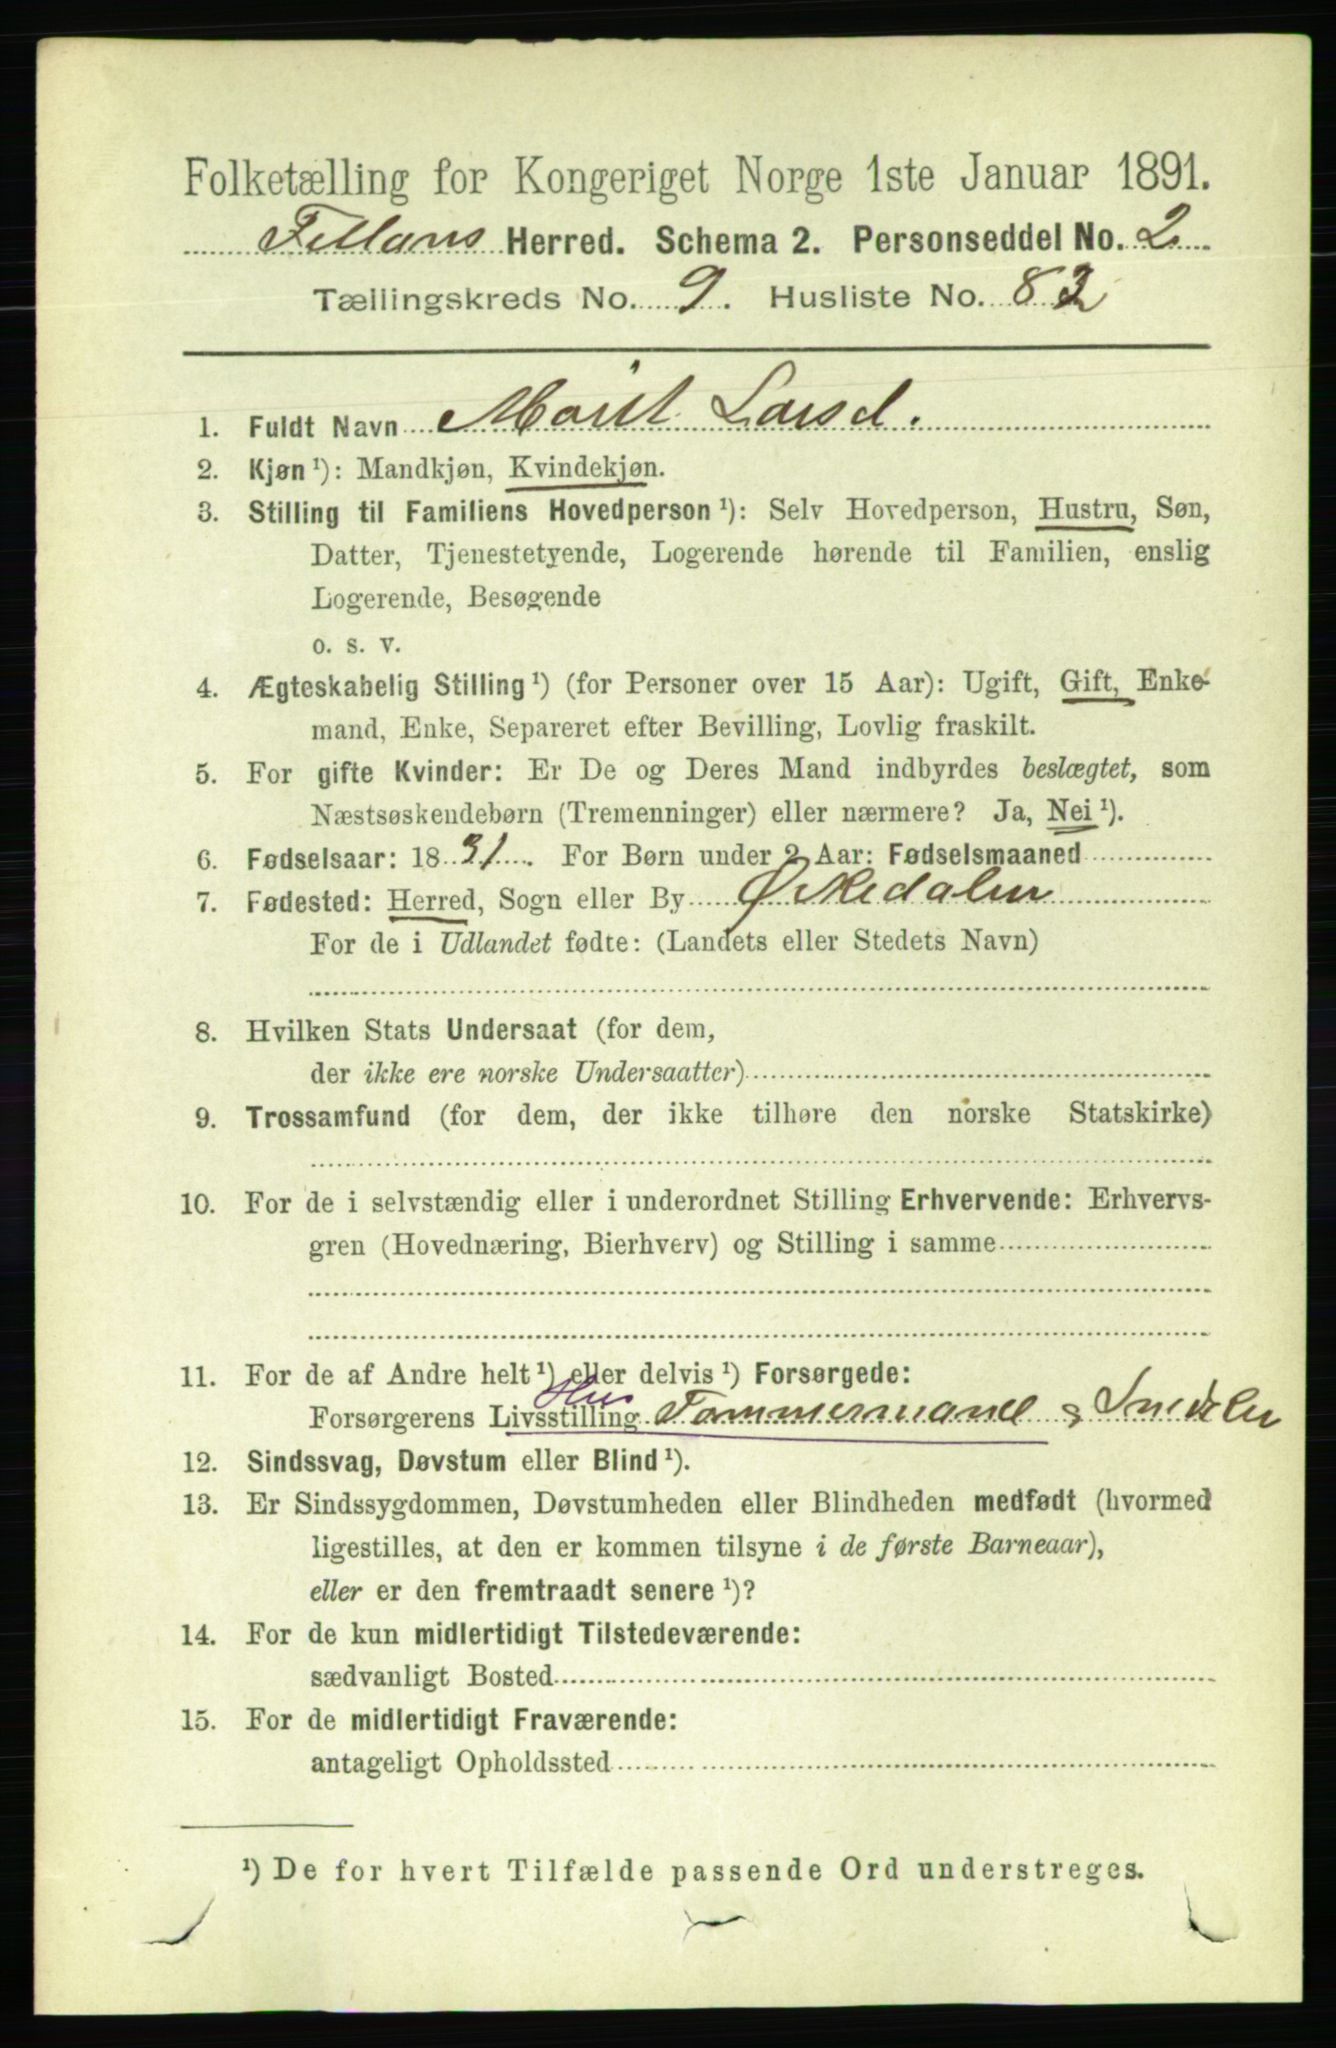 Folketælling for Kongeriget Norge 1ste Januar 1891.
Fillans Herred. Schema 2. Personseddel No. 2.
Tællingskreds No. 9. Husliste No. 82
1. Fuldt Navn Marit Larsd.
2. Kjøn ¹): Mandkjøn, Kvindekjøn.
3. Stilling til Familiens Hovedperson ¹): Selv Hovedperson, Hustru, Søn,
Datter, Tjenestetyende, Logerende hørende til Familien, enslig
Logerende, Besøgende
o. s. v.
4. Ægteskabelig Stilling ¹) (for Personer over 15 Aar): Ugift, Gift, Enke-
mand, Enke, Separeret efter Bevilling, Lovlig fraskilt.
5. For gifte Kvinder: Er De og Deres Mand indbyrdes beslægtet, som
Næstsøskendebørn (Tremenninger) eller nærmere? Ja, Nei ¹).
6. Fødselsaar: 1831. For Børn under 2 Aar: Fødselsmaaned
7. Fødested: Herred, Sogn eller By Ørkedalen
For de i Udlandet fødte: (Landets eller Stedets Navn)
8. Hvilken Stats Undersaat (for dem,
der ikke ere norske Undersaatter)
9. Trossamfund (for dem, der ikke tilhøre den norske Statskirke)
10. For de i selvstændig eller i underordnet Stilling Erhvervende: Erhvervs-
gren (Hovednæring, Bierhverv) og Stilling i samme
11. For de af Andre helt ¹) eller delvis ¹) Forsørgede:
Hus
Forsørgerens Livsstilling Tømmermand &
12. Sindssvag, Døvstum eller Blind ¹).
13. Er Sindssygdommen, Døvstumheden eller Blindheden medfødt (hvormed
ligestilles, at den er kommen tilsyne i de første Barneaar),
eller er den fremtraadt senere ¹)?
14. For de kun midlertidigt Tilstedeværende:
sædvanligt Bosted
15. For de midlertidigt Fraværende:
antageligt Opholdssted
¹) De for hvert Tilfælde passende Ord understreges.